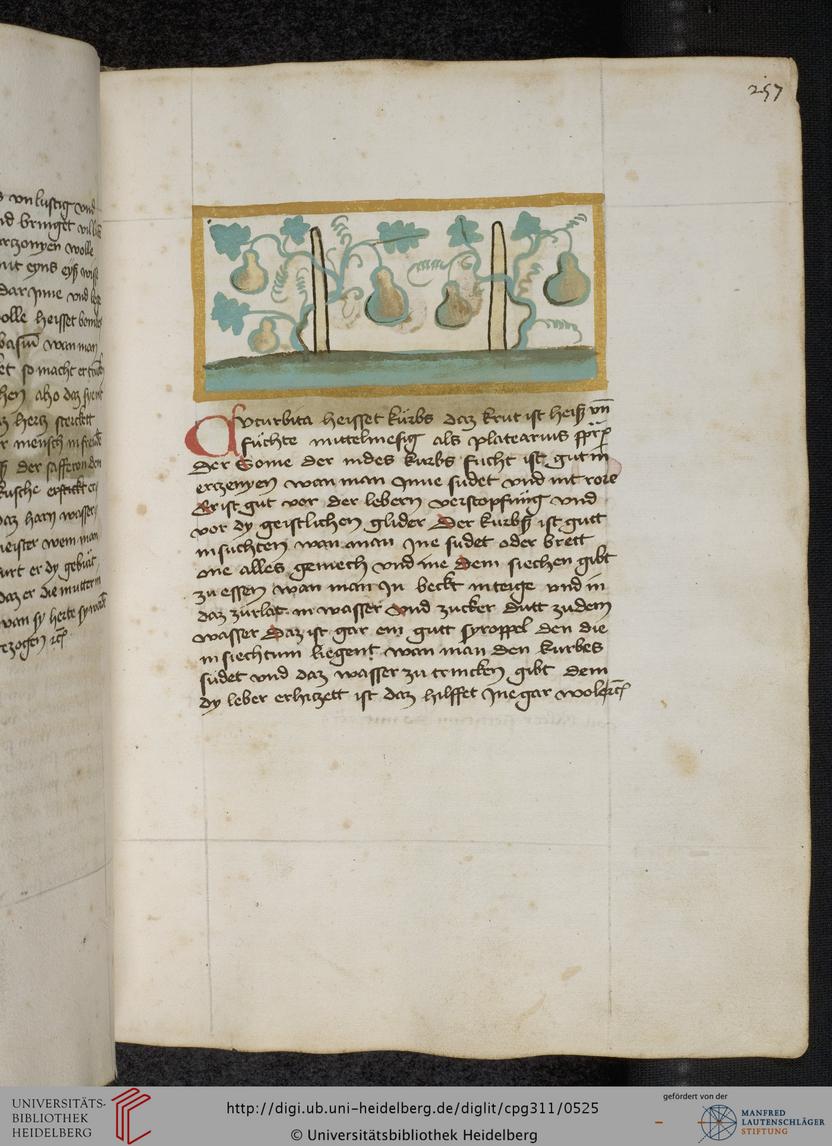 257
Cucurbita heisset kürbs daz krut ist heiß vn̄
fuchte mittelmesig als platearius spr̄
der Some der indes kurbs sucht ist gut in
erczenyen wan man Inne sudet vnd mit rore
Er ist gut vor der lebern verstopfung vnd
vor dy geistlichen glider Der kurbß ist gutt
in suchten wan man Ine sudet oder brett
one alles gemech vnd ine dem siechen gibt
zu essen wan man In beckt in teige vnd in
daz zürlat in wasser vnd zucker dutt zu dem
wasser Daz ist gar ein gutt syroppel den die
in siechtum liegent wan man den kurbes
sudet vnd daz wasser zu trincken gibt dem
dy leber erhiczett ist daz hilffet Ine gar wol
vn lustig vnd
bringet
erczonyen wolle
mit eyns
dar Inne vnd
wolle heisset
wan man
so macht er
hen also daz
hercz sterckt
mensch in
der safferon den
daz harn wasser
meister wem man
er dy geburt
daz er die mutter
wan sy herte
gezogen
UNIVERSITÄTS-
BIBLIOTHEK
HEIDELBERG
http://digi.ub.uni-heidelberg.de/diglit/cpg311/0525
© Universitätsbibliothek Heidelberg
gefördert von der
MANFRED
LAUTENSCHLÄGER
STIFTUNG